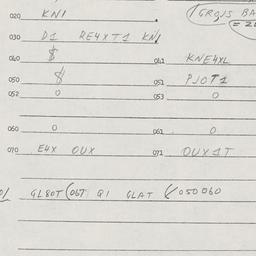 020 KN1
(GRQJS BA
= 2
030 D1 RE4XT1 KN1
040 $ 041 KNE4XL
050 $ 051 PJOT1
052 0 053 0
060 0 061 0
070 E4X OUX 071 OUX1T
GL80T (06T Q1 GLAT (050060